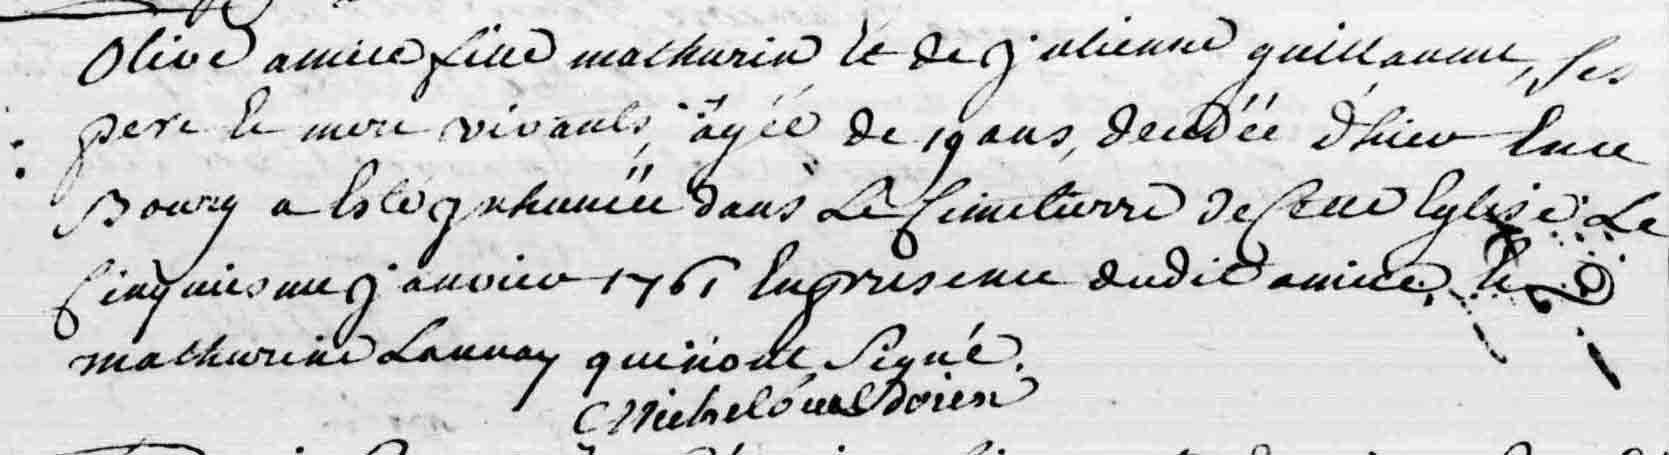 Olive amice fille mathurin et de julienne guillaume, ses
pere et mere vivants, âgéé de 19 ans, decédéé d'hier En ce
Bourg a Esté jnhumée dans Le Cimetierre de Cette Eglise Le
Cinquiesme janvier 1761 En presence dudit amice, et
mathurine Launay qui n'ont Signé.
doien